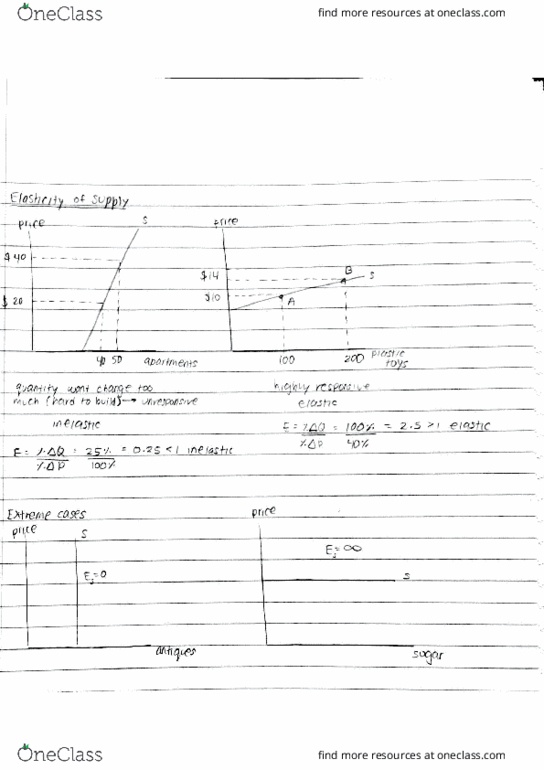 OneClass
find more resources at oneclass.com
Elasticity of Supply
price
S
Price
$40
$20
40 50 apartments
$14
$10
A
B
S
100
200
plastic
toys
quantity wont change too
much (hard to build) → unresponsive
inelastic
E = %ΔQ = 25% = 0.25 < 1 inelastic
%ΔP 100%
highly responsive
elastic
E = %ΔQ = 100% = 2.5 > 1 elastic
%ΔP 40%
Extreme cases
price
S
Es=0
antiques
price
Es=∞
S
sugar
OneClass
find more resources at oneclass.com